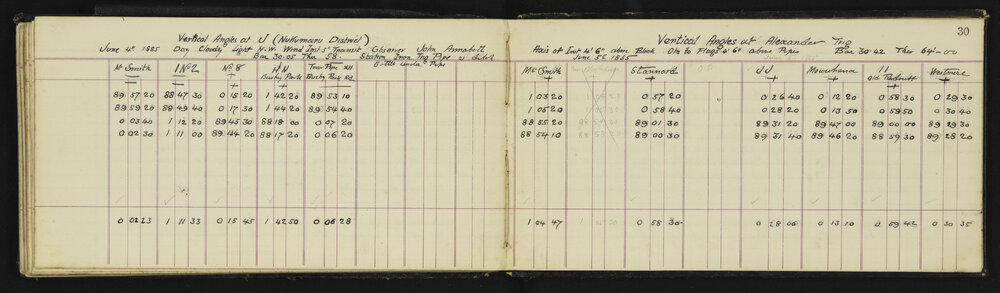 Vertical Angles at J (Nukumaru District)
June 4th 1885 Day Cloudy Light N.W. Wind Inst 5" Transit Observer John Annabell
Bar 30.05 Ther 58. Station Iron Trig Pipe in ditch
Bottle under Pipe
Mt Smith 1 No 2 No 8 Busby Park Trav Pipe XII Busby Park Rd.
89 57 20 88 47 30 0 15 20 1 42 20 89 53 10
89 59 20 88 49 40 0 17 30 1 44 20 89 54 40
0 03 40 1 12 20 89 45 30 88 18 00 0 07 20
0 02 30 1 11 00 89 44 20 88 17 20 0 06 20
0 02 23 1 11 33 0 15 45 1 42 50 0 06 28
30
Vertical Angles at Alexander Trig
Axis of Inst 4' 6" above Block Obs to Flags 4' 6" above Pipes Bar 30.42 Ther 64-00
June 5th 1885
Mt Smith Stannard JJ Mowhanau 11 Old Westmere
1 03 20 0 57 20 0 26 40 0 12 20 0 58 30 0 29 30
1 05 20 0 58 40 0 28 20 0 13 50 0 59 50 0 30 40
88 55 20 89 01 30 89 31 20 89 47 00 89 00 00 89 29 30
88 54 10 89 00 30 89 31 40 89 46 20 88 59 30 89 28 20
1 04 47 0 58 30 0 28 06 0 13 10 0 59 42 0 30 35